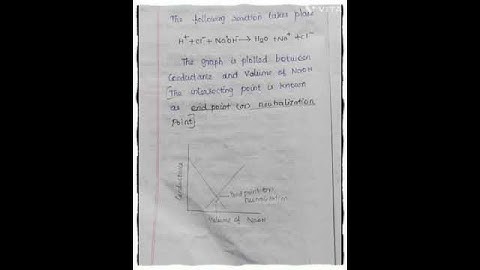 The following reaction takes place
H⁺+Cl⁻+NaOH⁻ → H₂O +Na⁺ +Cl⁻
The graph is plotted between
Conductance and Volume of NaOH
[The intersecting point is known
as end point (or) neutralization
Point]
Conductance
End point (or)
neutralization
Volume of NaOH